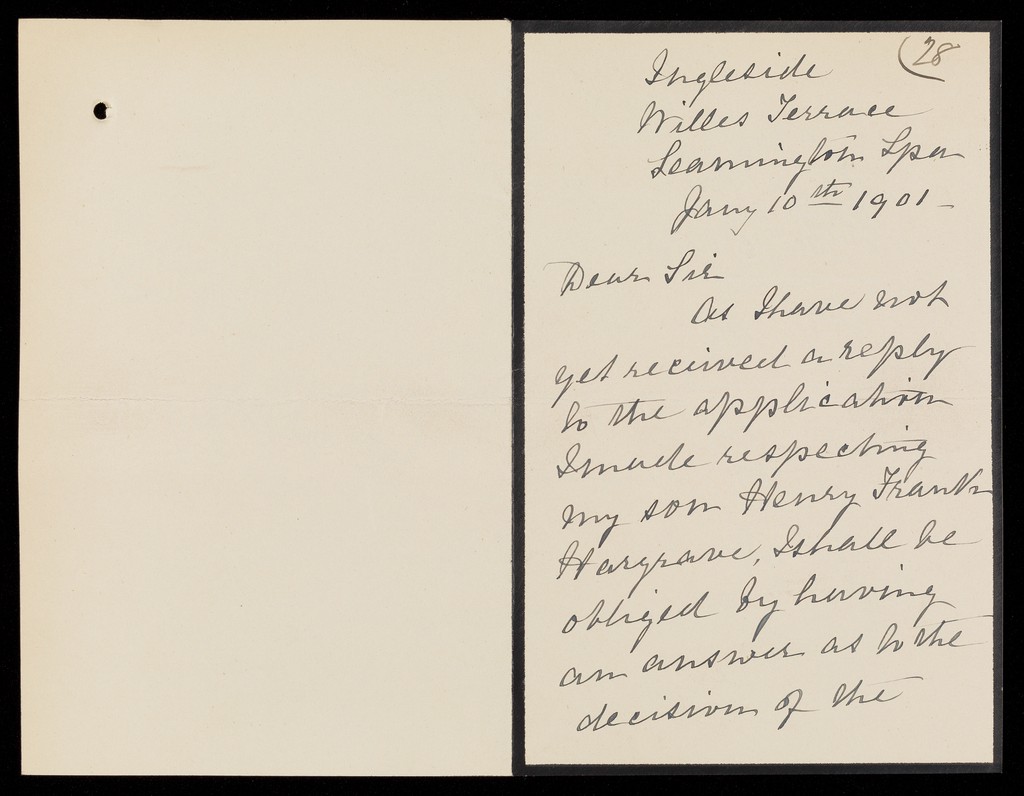 (28
Ingleside
Willes Terrace
Leamington Spa
Jany 10th 1901 -
Dear Sir
As I have not
yet received a reply
to the application
I made respecting
my son Henry Frank
Hargrave, I shall be
obliged by having
an answer as to the
decision of the